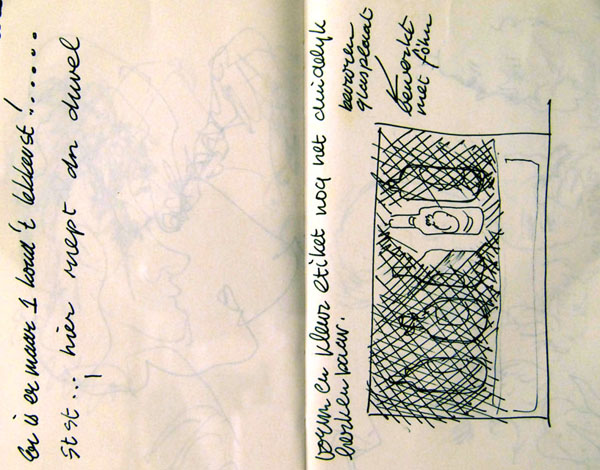 Er is er maar 1 koud 't lekkerst!......
St st... hier roept dn duvel
bevroren
glasplaat
bewerkt
met föhn
vorm en kleur etiket nog net duidelijk
herkenbaar.